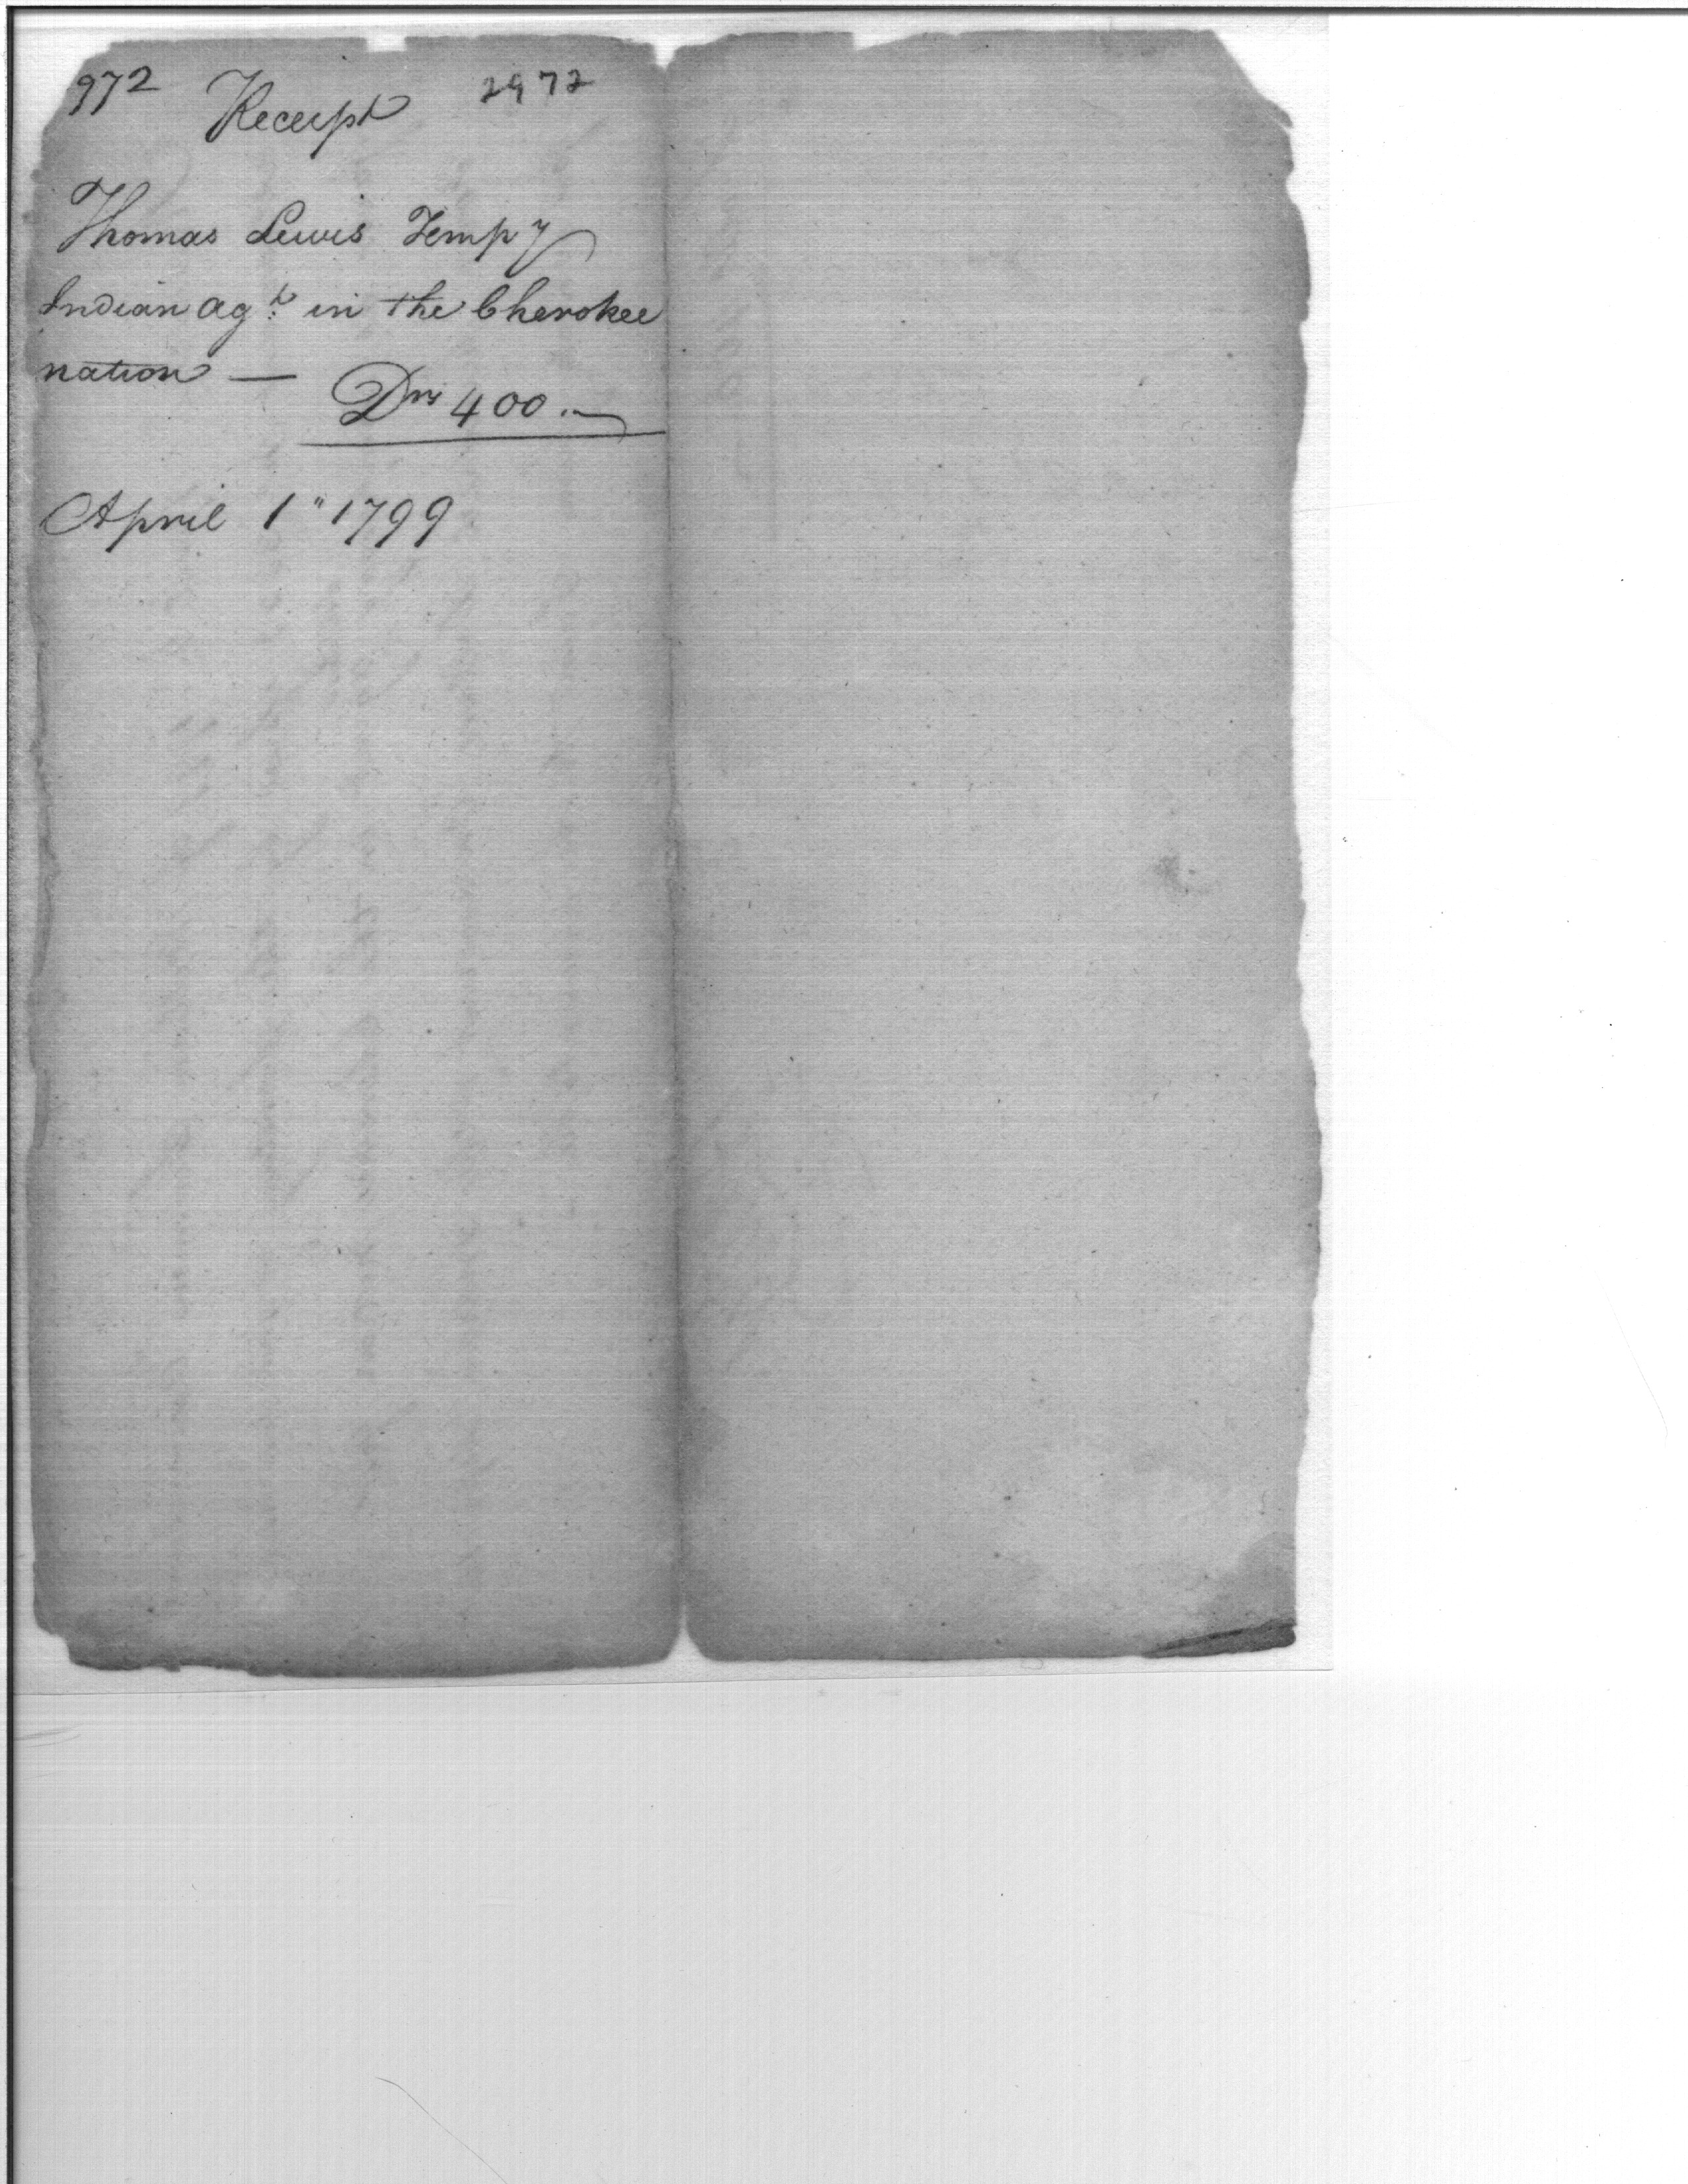 972 Receipt 2972
Thomas Lewis Tempy
Indian agt. in the Cherokee
nation —
Drs 400.—
April 1" 1799